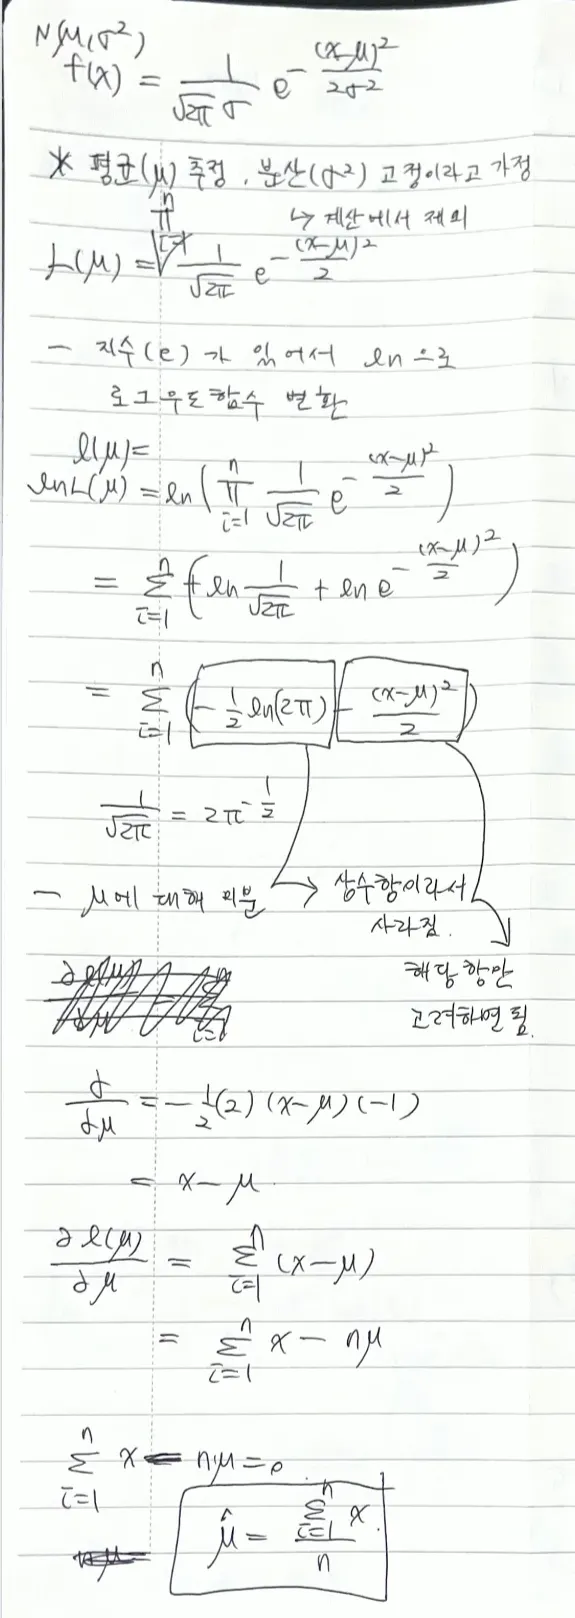 N(μ, σ²)
f(x) = 1/(√2π σ) e^-((x-μ)²/2σ²)
* 평균(μ) 추정, 분산(σ²) 고정이라고 가정
↳ 계산에서 제외
L(μ) = ∏_{i=1}^{n} 1/√2π e^-((x-μ)²/2)
- 지수(e)가 있어서 ln으로
로그우도함수 변환
l(μ)=
lnL(μ) = ln(∏_{i=1}^{n} 1/√2π e^-((x-μ)²/2))
= Σ_{i=1}^{n} (ln 1/√2π + ln e^-((x-μ)²/2))
= Σ_{i=1}^{n} (-1/2 ln(2π) - (x-μ)²/2)
1/√2π = 2π^-1/2
- μ에 대해 미분 → 상수항이라서
사라짐.
해당 항만
고려하면 됨.
∂/∂μ = -1/2(2)(x-μ)(-1)
= x-μ
∂l(μ)/∂μ = Σ_{i=1}^{n} (x-μ)
= Σ_{i=1}^{n} x - nμ
Σ_{i=1}^{n} x - nμ = 0
μ̂ = Σ_{i=1}^{n} x / n